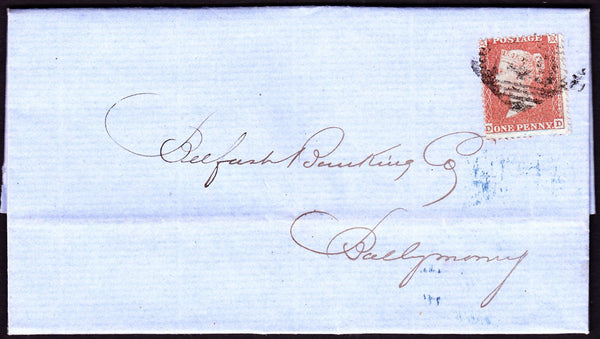 POSTAGE
D ONE PENNY D
Belfast Banking Co
Ballymoney